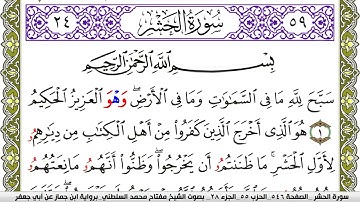 ٢٤ سُورَةُ الحَشْرِ ٥٩
بِسْمِ اللَّهِ الرَّحْمَٰنِ الرَّحِيمِ
سَبَّحَ لِلَّهِ مَا فِي السَّمَٰوَٰتِ وَمَا فِي الْأَرْضِ وَهْوَ الْعَزِيزُ الْحَكِيمُ
١ هُوَ الَّذِي أَخْرَجَ الَّذِينَ كَفَرُوا مِنْ أَهْلِ الْكِتَٰبِ مِن دِيَٰرِهِمُ
لِأَوَّلِ الْحَشْرِ مَا ظَنَنتُمُ أَن يَخْرُجُوا وَظَنُّوا أَنَّهُمُ مَانِعَتُهُمُ
سورة الحشر_الصفحة ٥٤٦_الحزب ٥٥_الجزء ٢٨_ بصوت الشيخ مفتاح محمد السلطني_برواية ابن جماز عن أبي جعفر